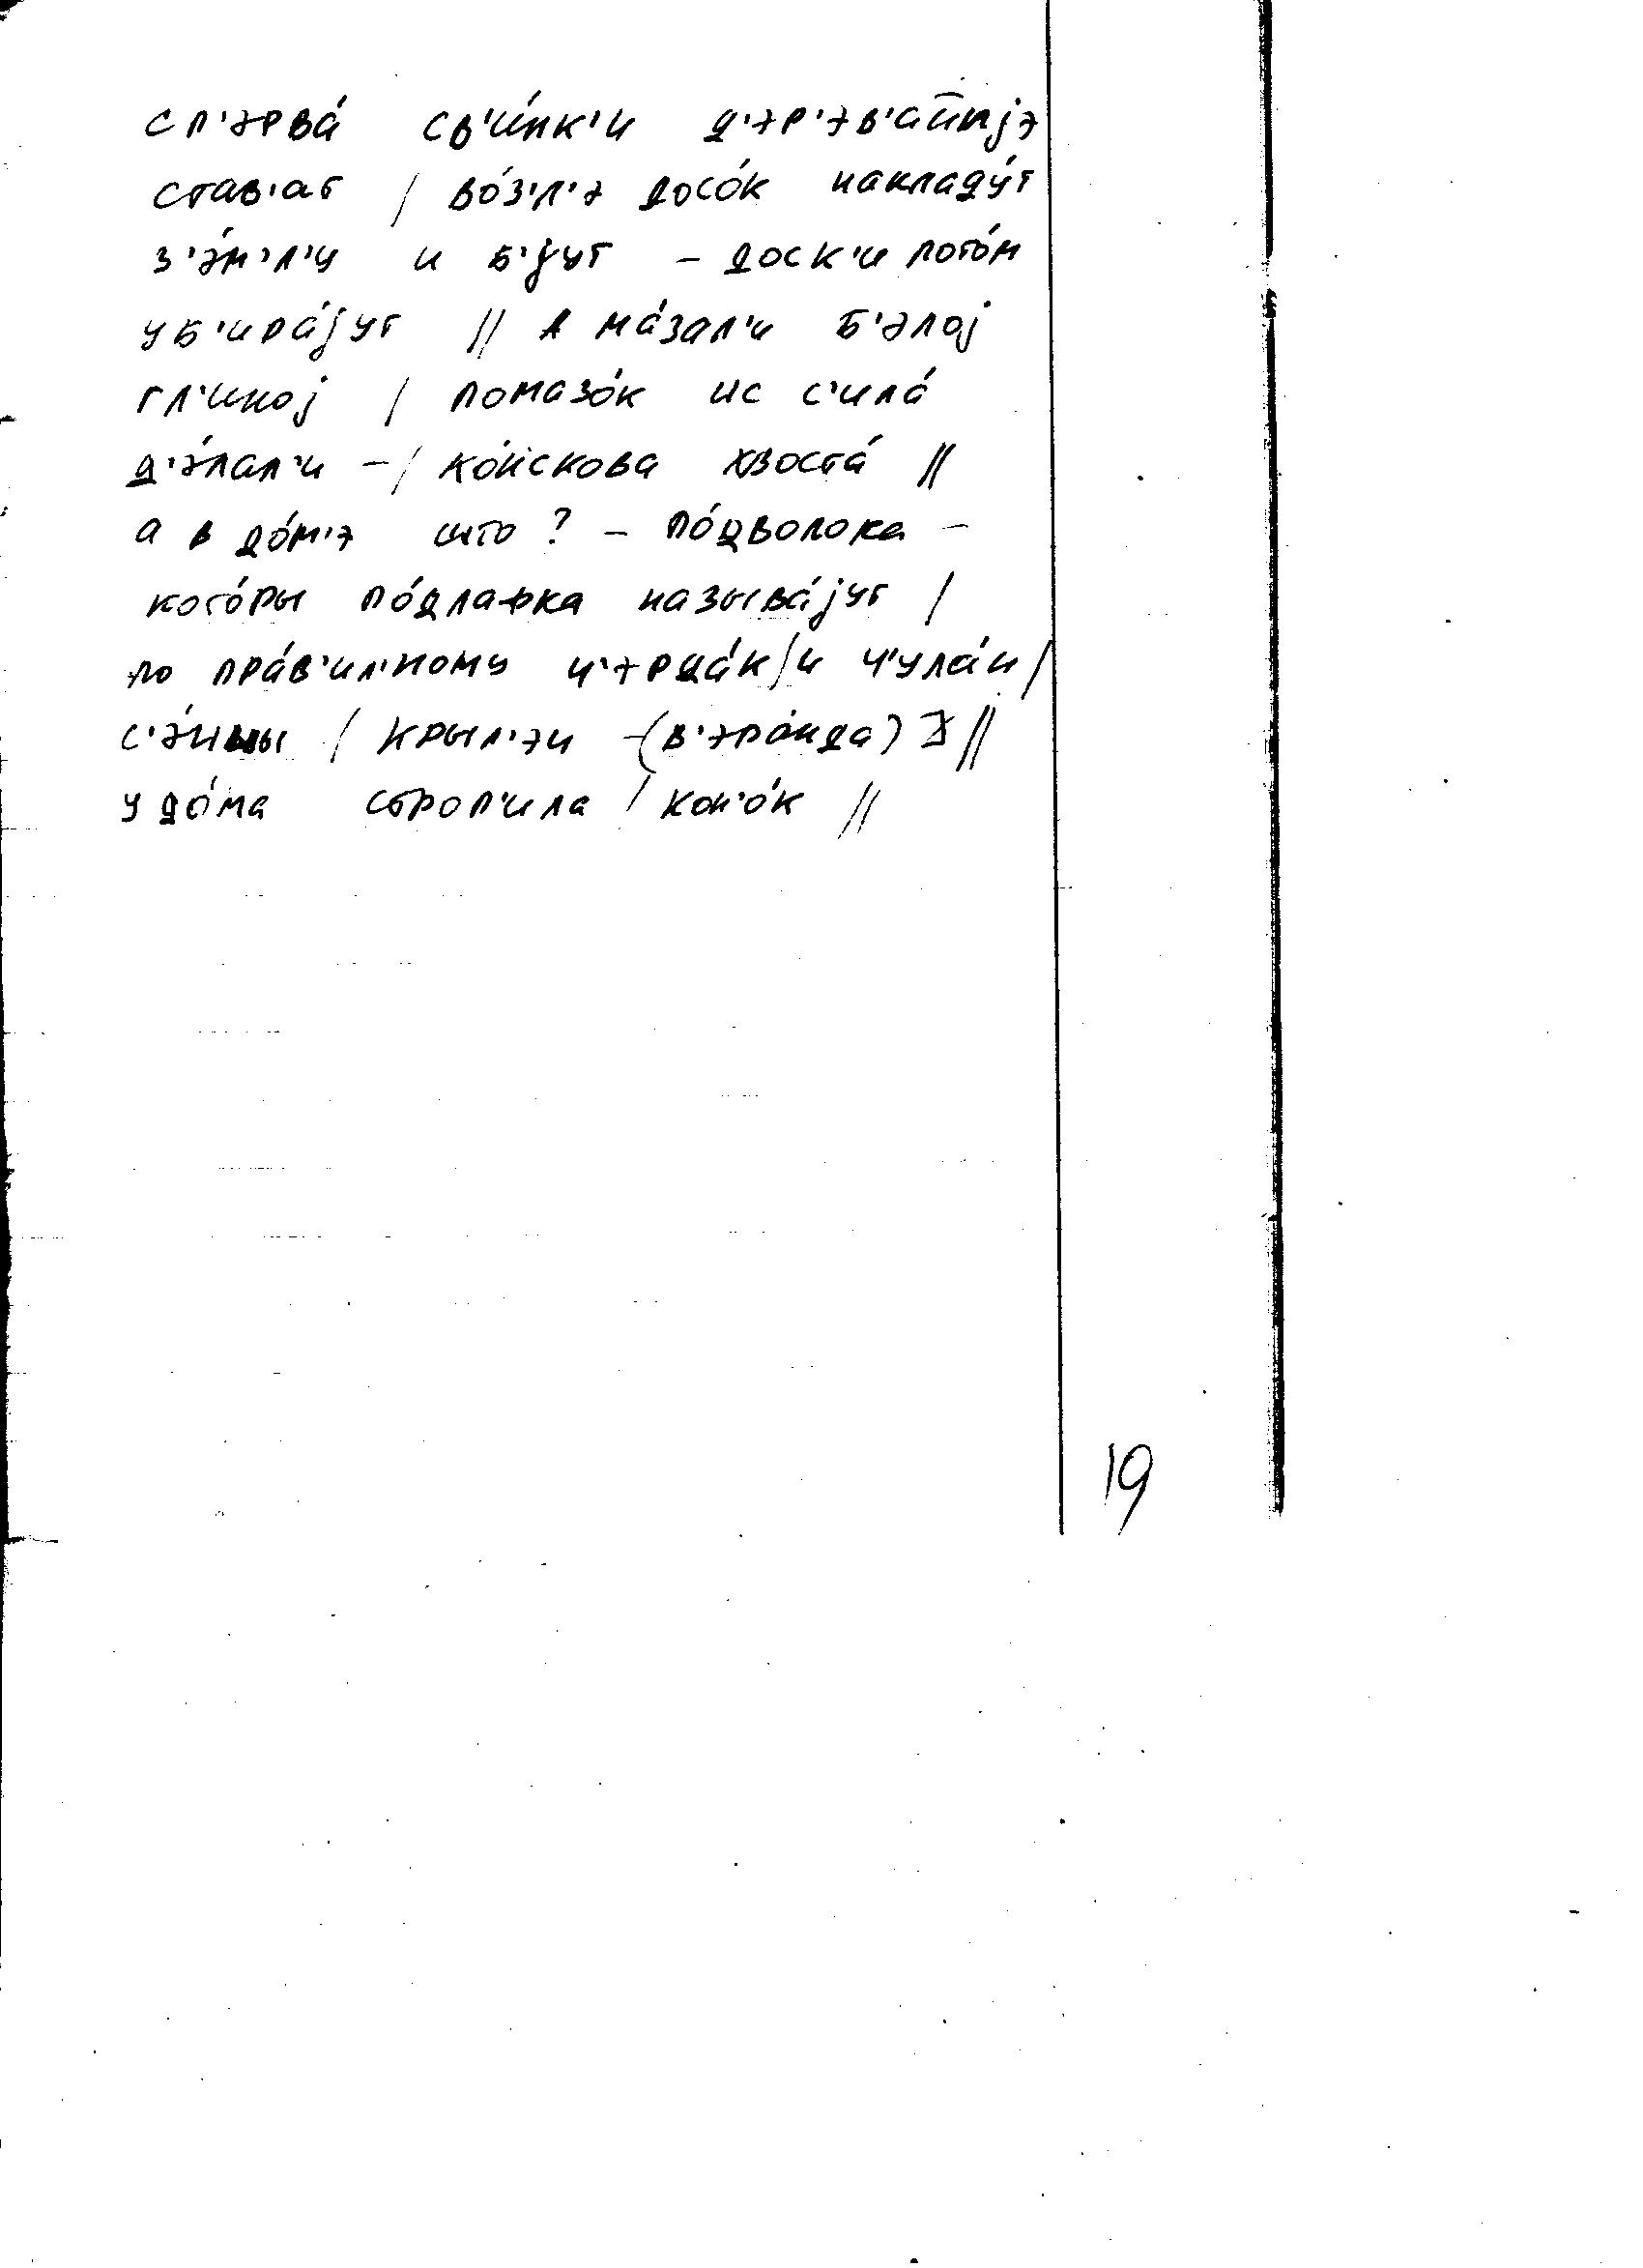 сп'эрва́ св'и́нк'и д'эр'эв'а́ннjэ
став'ат / во́з'л'э досо́к накладу́т
з'э́м'л'у и б'jут – доск'и пото́м
уб'ира́jут // А ма́зал'и б'э́лоj
гл'инoj / помазо́к ис с'ила́
д'э́лал'и – / ко́нскова хвоста́ //
а в до́м'э што ? – по́дволока –
кото́ры по́длафка называ́jут /
по пра́в'ил'ному ч'эрда́к / и ч'ула́н /
с'э́ны / крыл'эч – (в'эра́нда) //
у до́ма строп'ила / кон'о́к //
19